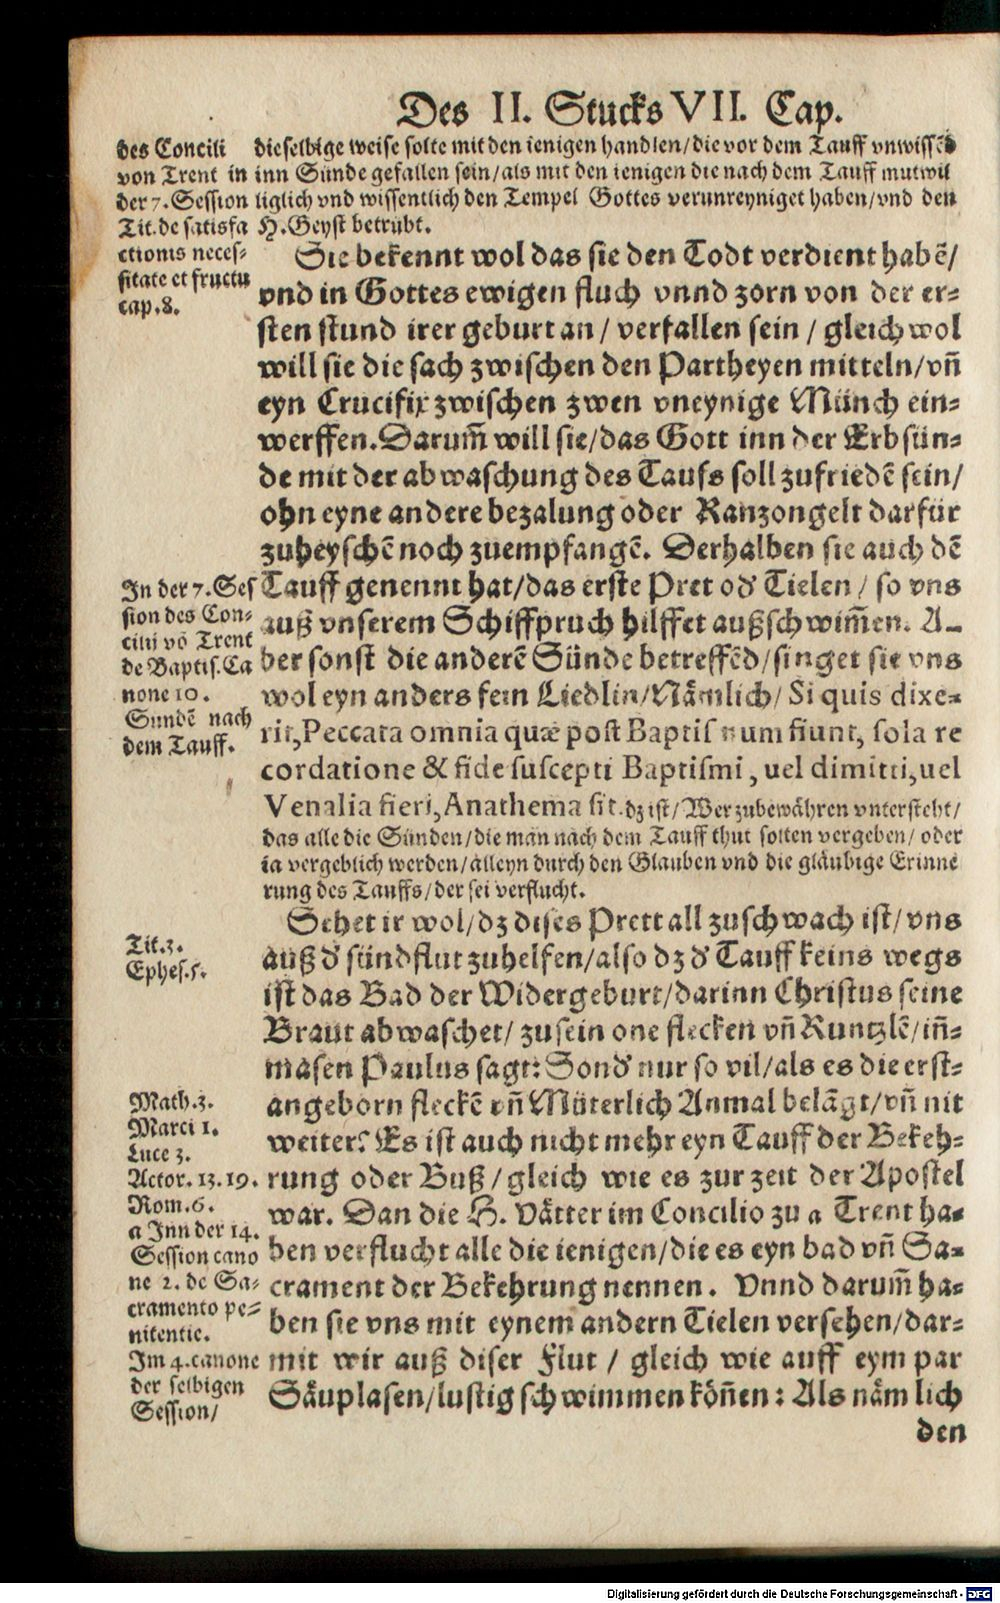 Des II. Stucks VII. Cap.
des Concili
von Trent in
der 7. Session
Tit. de satisfa
ctionis neces-
sitate et fructu
cap. 8.
dieselbige weise solte mit den ienigen handlen/ die vor dem Tauff vnwissēd
inn Sünde gefallen sein/ als mit den ienigen die nach dem Tauff mutwil
liglich vnd wissentlich den Tempel Gottes verunreyniget haben/ vnd den
H. Geyst betrübt.
Sie bekennt wol das sie den Todt verdient habē/
vnd in Gottes ewigen fluch vnnd zorn von der er-
sten stund irer geburt an/ verfallen sein/ gleich wol
will sie die sach zwischen den Partheyen mitteln/ vñ
eyn Crucifix zwischen zwen vneynige Münch ein-
werffen. Darum̄ will sie/ das Gott inn der Erbsün-
de mit der abwaschung des Taufs soll zufriedē sein/
ohn eyne andere bezalung oder Ranzongelt darfür
zuheyschē noch zuempfangē. Derhalben sie auch dē
Tauff genennt hat/ das erste Pret od' Tielen/ so vns
auß vnserem Schiffpruch hilffet außschwim̄en. A-
ber sonst die anderē Sünde betreffēd/ singet sie vns
wol eyn anders fein Liedlin/ Nämlich/ Si quis dixe-
rit, Peccata omnia quæ post Baptismum fiunt, sola re
cordatione & fide suscepti Baptismi, uel dimitti, uel
Venalia fieri, Anathema sit. dz ist/ Wer zubewähren vntersteht/
das alle die Sünden/ die man nach dem Tauff thut solten vergeben/ oder
ia vergeblich werden/ alleyn durch den Glauben vnd die gläubige Erinne
rung des Tauffs/ der sei verflucht.
In der 7. Ses
sion des Con-
cilij vō Trent
de Baptis. Ca
none 10.
Sündē nach
dem Tauff.
Sehet ir wol/ dz dises Prett all zuschwach ist/ vns
auß d' sündflut zuhelfen/ also dz d' Tauff keins wegs
ist das Bad der Widergeburt/ darinn Christus seine
Braut abwaschet/ zusein one flecken vñ Runtzlē/ iñ-
masen Paulus sagt: Sond' nur so vil/ als es die erst-
angeborn fleckē vñ Müterlich Anmal belāgt/ vñ nit
weiter. Es ist auch nicht mehr eyn Tauff der Bekeh-
rung oder Buß/ gleich wie es zur zeit der Apostel
war. Dan die H. Vätter im Concilio zu a Trent ha-
ben verflucht alle die ienigen/ die es eyn bad vñ Sa-
crament der Bekehrung nennen. Vnnd darum̄ ha-
ben sie vns mit eynem andern Tielen versehen/ dar-
mit wir auß diser Flut/ gleich wie auff eym par
Säuplasen/ lustig schwimmen köñen: Als nämlich
Tit. 3.
Ephes. 5.
Math. 3.
Marci 1.
Luce 3.
Actor. 13. 19.
Rom. 6.
a Inn der 14.
Session cano
ne 2. de Sa-
cramento pe-
nitentie.
Im 4. canone
der selbigen
Session/
den
Digitalisierung gefördert durch die Deutsche Forschungsgemeinschaft - DFG